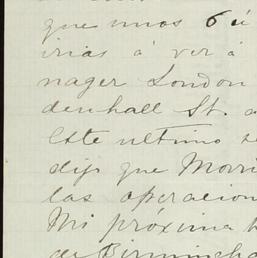 que unos 6 ú
irias á ver á
nager London
denhall St. a
Este ultimo
dijo que Morri
las operacion
Mi próxima
de Birmingha